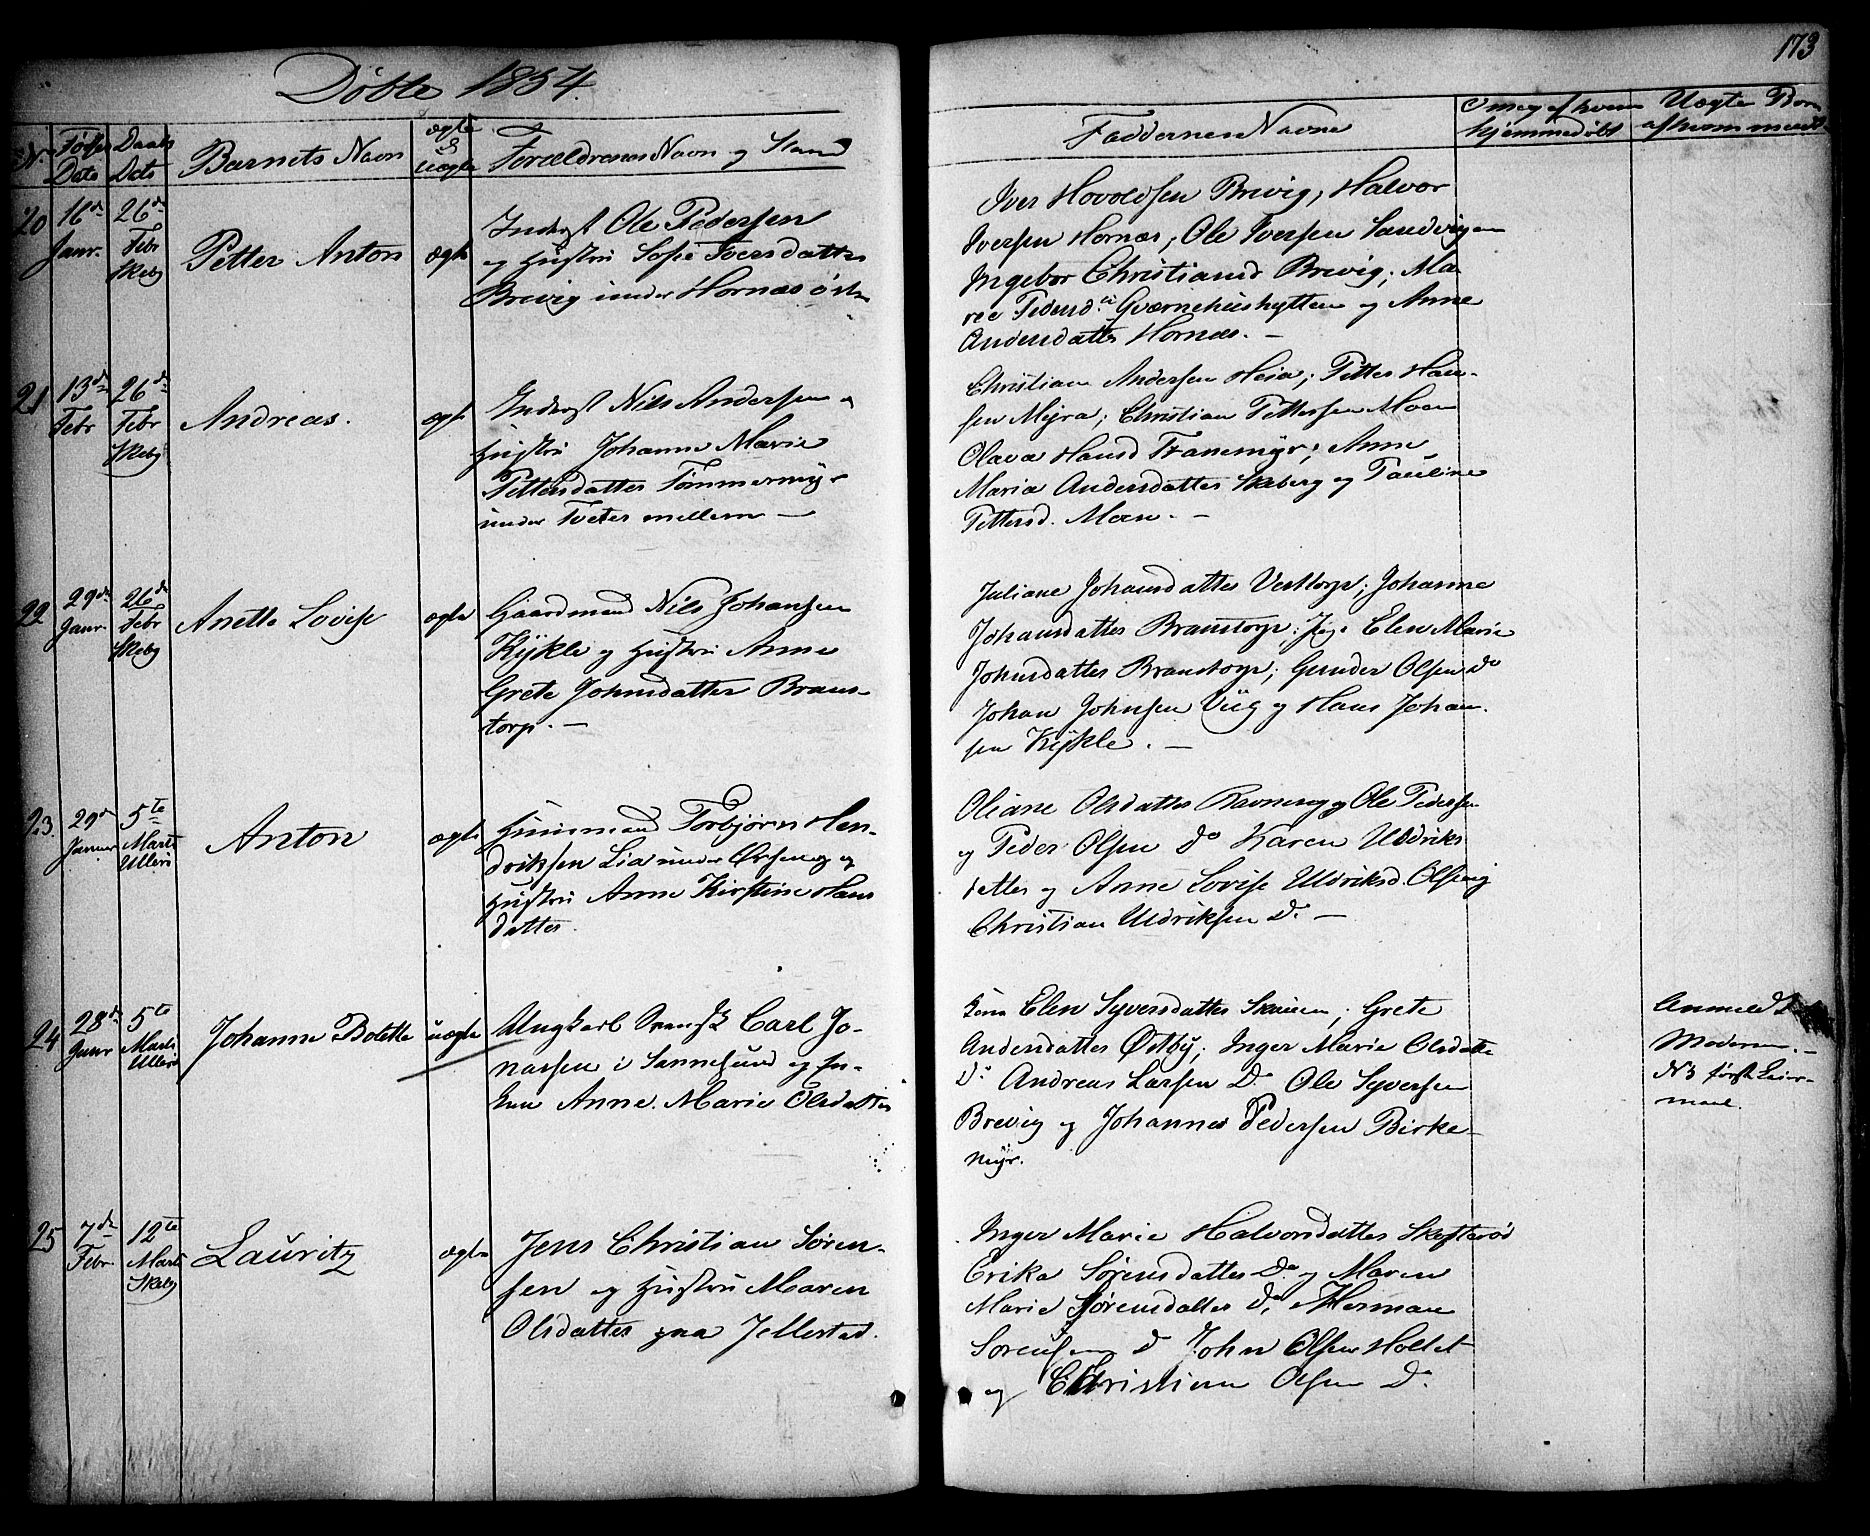 173
Døbte 1854.
No Fødsels Dato Daabs Dato Barnets Navn ægte & uægte Forældrenes Navn og Stand
Faddernes Navne
Om og af hvem hjemmedøbt
Uægte Børn af hvem meldt
20 16de Janr. 26de Febr Skeby Petter Anton ægte
Inderst Ole Pedersen
og Hustru Sofie Iversdatter
Brevig under Hornæs østre
Iver Hovoldsen Brevig, Halvor
Iversen Hornæs, Ole Iversen Sandvigen
Ingebor Christiansd Brevig; Ma
ree Pedersd. Qværnehushytten og Anne
Andersdatter Hornæs. —
21 13de Febr 26de Febr Skeby Andreas. ægte
Inderst Nils Andersen og
Hustru Johanne Marie
Pettersdatter Tømmermyr
under Tveter mellem —
Christian Andersen Heia; Petter Han-
sen Myra; Christian Pettersen Moen
Olava Hansd Tranemyr; Anne
Maria Andersdatter Skeberg og Pauline
Pettersd. Moen. —
22 29de Janr. 26de Febr Skeby Anette Lovise ægte
Gaardmand Nils Johansen
Kykle og Hustru Anne
Grete Johnsdatter Brans-
torp. —
Juliane Johansdatter Vesttorp; Johanne
Johansdatter Branstorp; Pige Elen Marie
Johnsdatter Branstorp; Gunder Olsen do
Johan Johnsen Viig og Hans Johan-
sen Kykle. —
23. 29de Januar 5te Marts Ullerø Anton ægte
Huusmand Torbjørn Hen-
driksen Lia under
Hustru Anne Kirstine Hans
datter.
Oliane Olsdatter Ravneng og Ole Pedersen
og Peder Olsen Do Karen Uldriks
datter og Anne Lovise Uldriksd. Olseng
Christian Uldriksen Do. —
24 28de Janr 5te Marts Ullerø Johanne Bolette uægte
Ungkarl Svensk Carl Jo-
nassen i Sannesund og En-
ken Anne Marie Olsdatter
Kone Elen Syversdatter Skauen; Grete
Andersdatter Østby; Inger Marie Olsdatter
Do Andreas Larsen Do Ole Syversen
Brevig og Johannes Pedersen Birke-
myr.
Anmeldt
Moderen. —
N 3 første Leier-
maal.
25 7de Febr. 12te Marts Skeby Lauritz ægte
Jens Christian Søren-
sen og Hustru Maren
Olsdatter paa Jellestad.
Inger Marie Halvorsdatter Skofterød
Erika Sørensdatter Do. og Maren
Marie Sørensdatter Do, Herman
Sørensen D John Olsen Holtet
og Christian Olsen Do